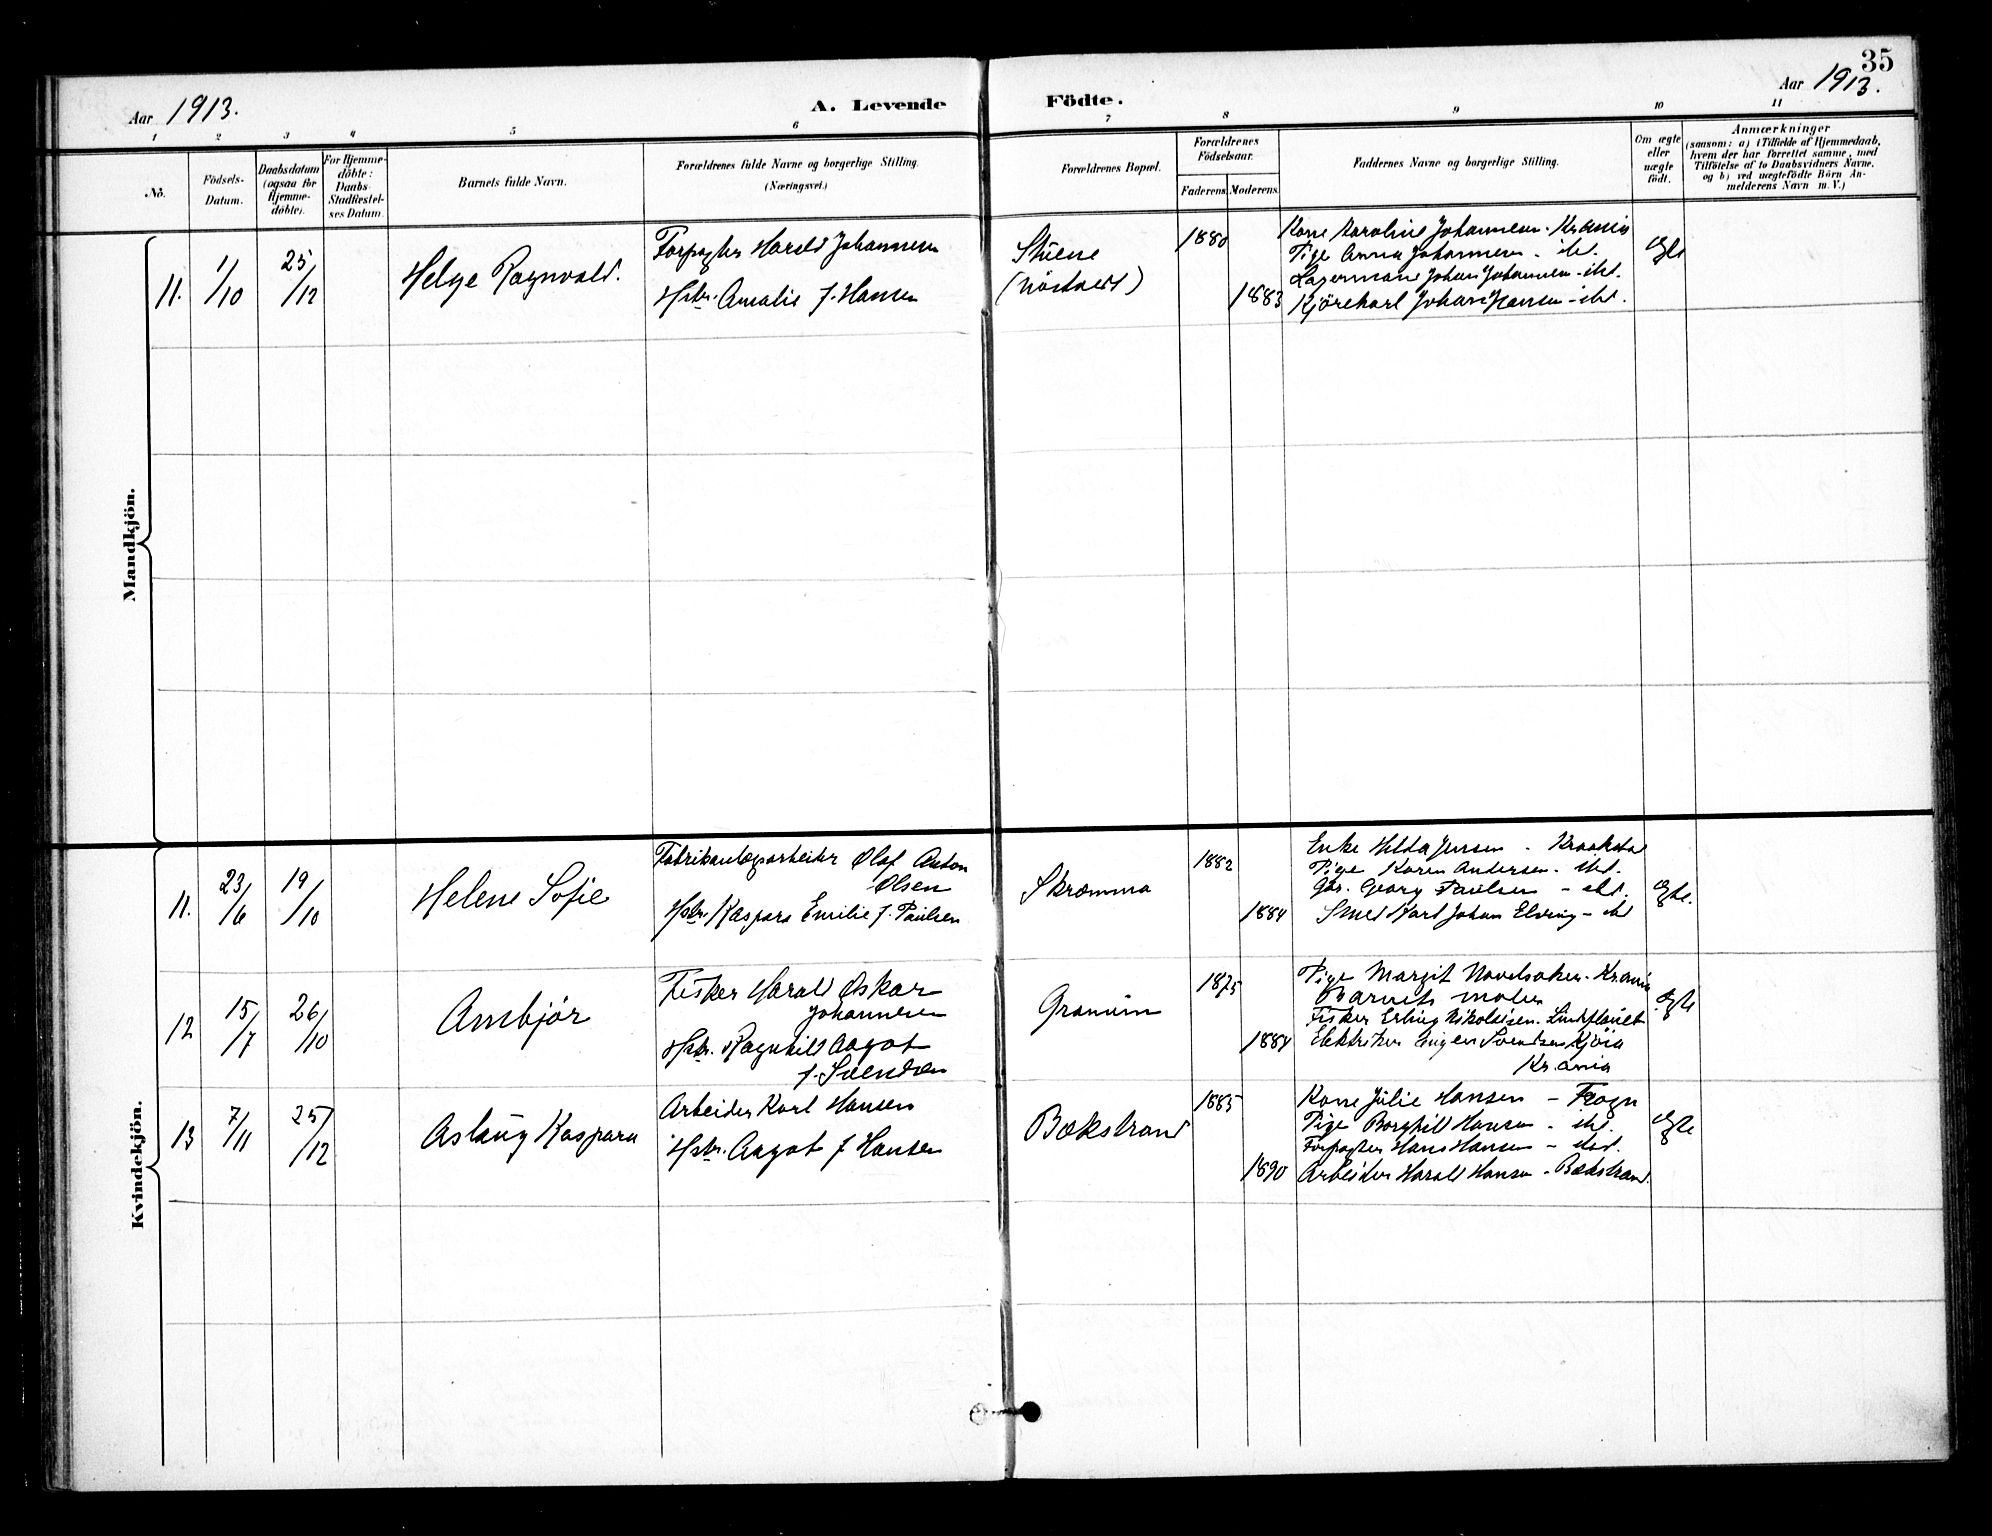 35
Aar 1913.
A. Levende
Födte.
Aar 1913.
1 2 3 4 5 6 7 8 9 10 11
No.
Födsels-
Datum.
Daabsdatum
(ogsaa for
Hjemme-
döbte).
For Hjemme-
döbte:
Daabs-
Stadfæstel-
ses Datum.
Barnets fulde Navn.
Forældrenes fulde Navne og borgerlige Stilling.
(Næringsvei.)
Forældrenes Bopæl.
Forældrenes
Födselsaar.
Faderens. Moderens.
Faddernes Navne og borgerlige Stilling.
Om ægte
eller
uægte
födt.
Anmærkninger
(saasom: a) i Tilfælde af Hjemmedaab,
hvem der har forrettet samme, med
Tilföielse af to Daabsvidners Navne,
og b) ved uægtefödte Börn An-
melderens Navn m. V.)
Mandkjön.
11.
1/10
25/12
Helge Ragnvald.
Forpagter Harald Johannesen
Hstr. Amalie f. Hansen
Stuene
1880
1883
Kone Karoline Johannesen - Kr.ania
Pige Anna Johannesen - ibd.
Lagermand Johan Johannesen - ibd.
Kjörekarl Johan Hansen - ibd.
Egte
Kvindekjön.
11.
23/6
19/10
Helene Sofie
Fabrikanlægsarbeider Olaf Anton
Olsen
Hstr. Kaspara Emilie f. Paulsen
Skramma
1882
1884
Enke Hilda Jensen - Kraakstad
Pige Karen Andersen - ibd.
Gbr. Georg Paulsen - ibd.
Smed Karl Johan Elving - ibd
Egte.
12
15/7
26/10
Arnbjör
Fisker Harald Oskar
Johannesen
Hstr. Ragnhild Aagot
f. Svendsen
Granum
1875
1884
Pige Margit - Kr.ania
Barnets moder
Fisker Erling Nikolaisen.
Elektriker Eugen Svendsen
Kr.ania
Egte
13
7/11
25/12
Aslaug Kaspara
Arbeider Karl Hansen
Hstr. Aagot f Hansen
Bækstrand
1885
1890
Kone Julie Hansen - Frogn
Pige Borghild Hansen - ibd.
Forpagter Hans Hansen - ibid.
Arbeider Harald Hansen - Bækstrand
Egte